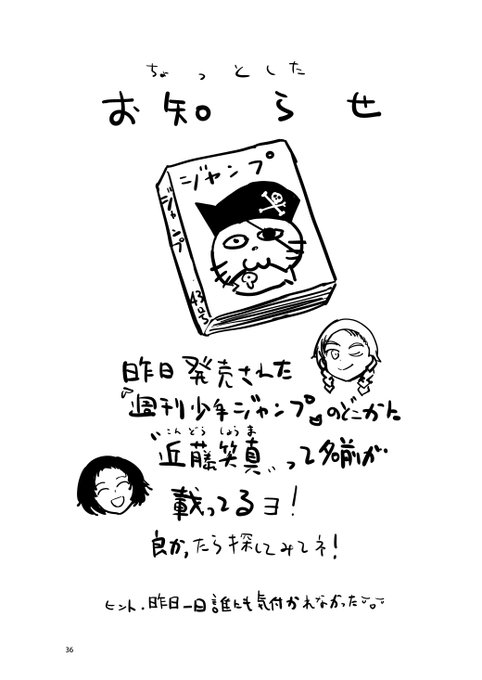 ちょっとした
お知らせ
ジャンプ
ジャンプ
43
昨日発売された
『週刊少年ジャンプ』のどこかに
こんどう しょうま
"近藤笑真"って名前が
載ってるヨ!
良かったら探してみてネ!
ヒント・昨日一日誰にも気付かれなかった
36